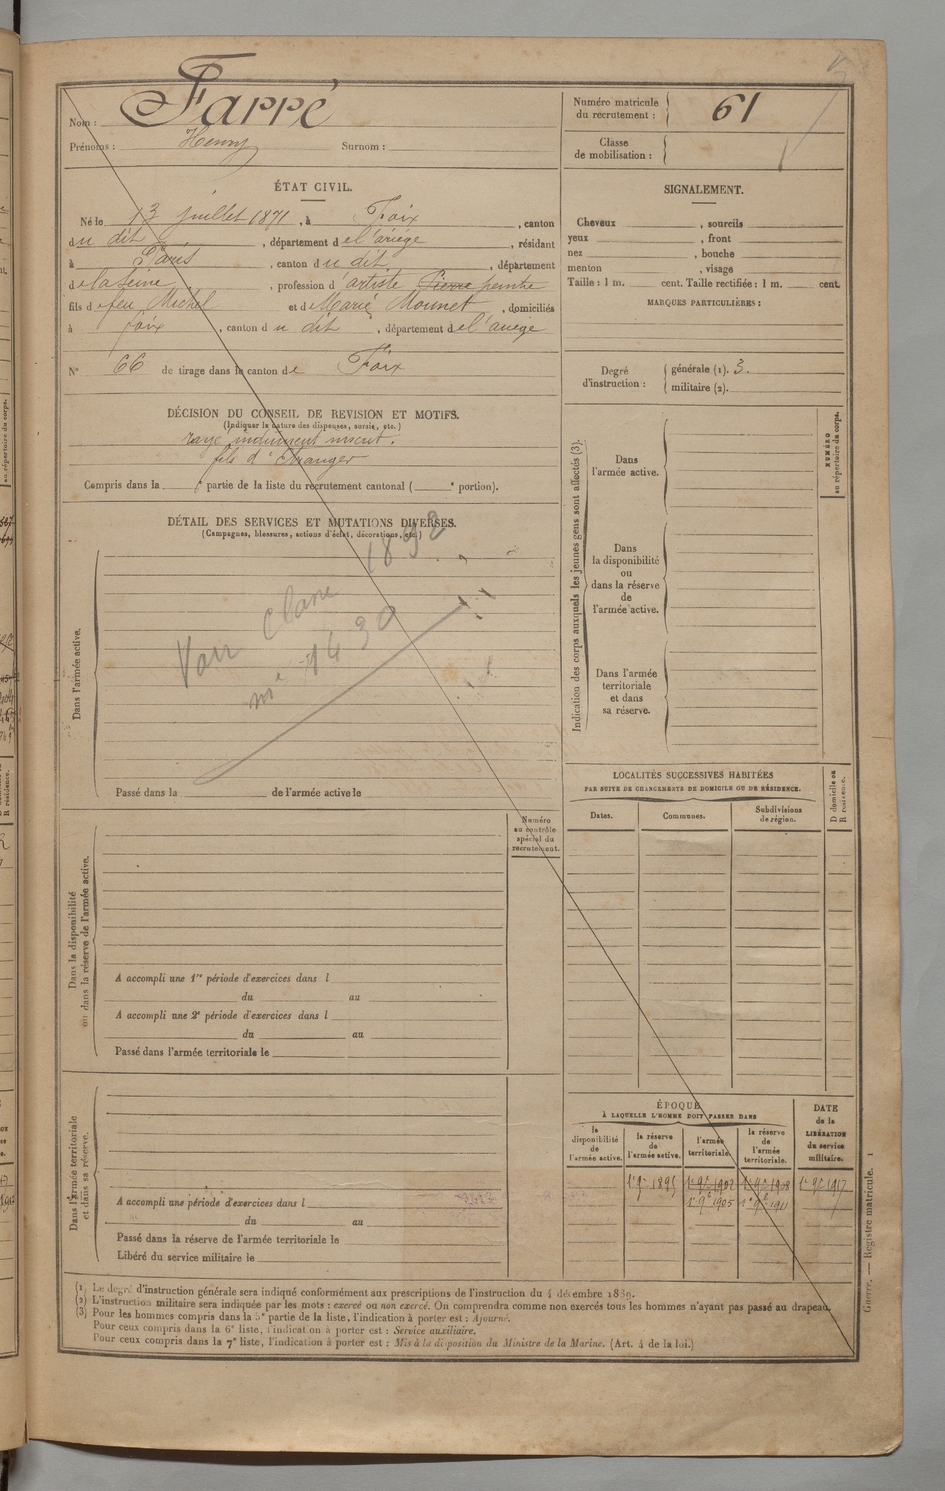 Nom : Farré
Prénoms : Henry Surnom :
Numéro matricule du recrutement : 61
Classe de mobilisation :
ÉTAT CIVIL.
Né le 13 juillet 1871, à Foix, canton
du dit, département de l'ariège, résidant
à Paris, canton du dit, département
de la Seine, profession d'artiste Pierre peintre
fils de feu Michel et de Marie Mounet, domiciliés
à foix, canton du dit, département de l'ariège
N° 66 de tirage dans le canton de Foix
SIGNALEMENT.
Cheveux , sourcils
yeux , front
nez , bouche
menton , visage
Taille : 1 m. cent. Taille rectifiée : 1 m. cent.
MARQUES PARTICULIÈRES :
Degré d'instruction : générale (1). 3.
militaire (2).
DÉCISION DU CONSEIL DE REVISION ET MOTIFS.
(Indiquer la nature des dispenses, sursis, etc.)
rayé indument inscrit.
fils d'étranger
Compris dans la e partie de la liste du recrutement cantonal ( e portion).
DÉTAIL DES SERVICES ET MUTATIONS DIVERSES.
(Campagnes, blessures, actions d'éclat, décorations, etc.)
Dans l'armée active.
Voir classe 1892
n° 1430
Passé dans la de l'armée active le
Indication des corps auxquels les jeunes gens sont affectés (3).
NUMÉRO au répertoire du corps.
Dans l'armée active.
Dans la disponibilité ou dans la réserve de l'armée active.
Dans l'armée territoriale et dans sa réserve.
LOCALITÉS SUCCESSIVES HABITÉES
PAR SUITE DE CHANGEMENTS DE DOMICILE OU DE RÉSIDENCE.
Dates. Communes. Subdivisions de région. D domicile ou R résidence.
Numéro au contrôle spécial du recrutement.
Dans la disponibilité ou dans la réserve de l'armée active.
A accompli une 1re période d'exercices dans l
du au
A accompli une 2e période d'exercices dans l
du au
Passé dans l'armée territoriale le
Dans l'armée territoriale et dans sa réserve.
A accompli une période d'exercices dans l
du au
Passé dans la réserve de l'armée territoriale le
Libéré du service militaire le
ÉPOQUE
À LAQUELLE L'HOMME DOIT PASSER DANS
la disponibilité de l'armée active. la réserve de l'armée active. l'armée territoriale. la réserve de l'armée territoriale.
DATE de la LIBÉRATION du service militaire.
1er 9e 1895 1er 9e 1902 1er 9e 1908 1er 9e 1917
1er 9e 1905 1er 9e 1911
(1) Le degré d'instruction générale sera indiqué conformément aux prescriptions de l'instruction du 4 décembre 1889.
(2) L'instruction militaire sera indiquée par les mots : exercé ou non exercé. On comprendra comme non exercés tous les hommes n'ayant pas passé au drapeau.
(3) Pour les hommes compris dans la 5e partie de la liste, l'indication à porter est : Ajourné.
Pour ceux compris dans la 6e liste, l'indication à porter est : Service auxiliaire.
Pour ceux compris dans la 7e liste, l'indication à porter est : Mis à la disposition du Ministre de la Marine. (Art. 4 de la loi.)
Guerre. — Registre matricule. 1